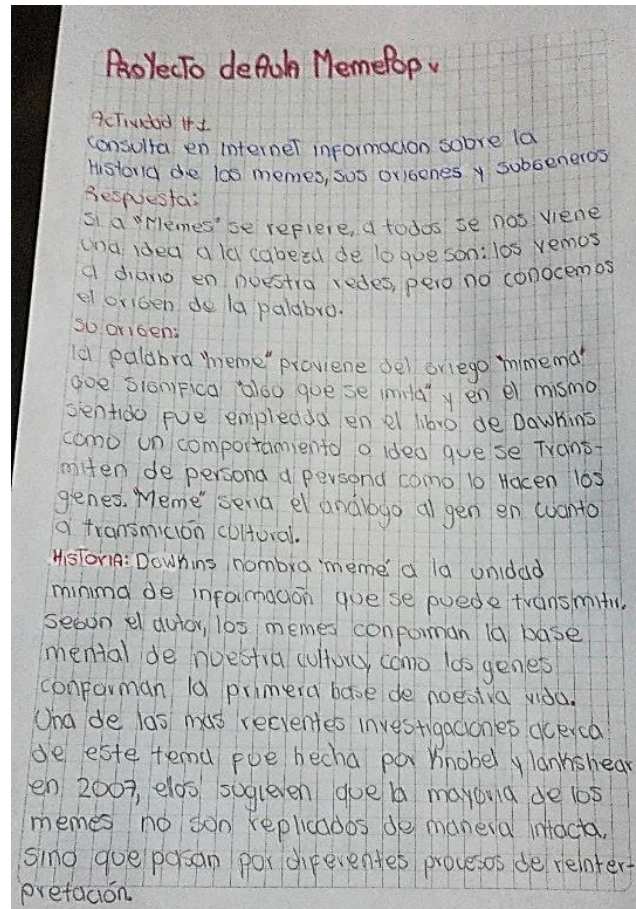 Proyecto de Aula MemePop
Actividad #1
consulta en internet informacion sobre la
Historia de los memes, sus origenes y subgeneros
Respuesta:
Si a "Memes" se refiere, a todos se nos viene
una idea a la cabeza de lo que son: los vemos
a diario en nuestra redes, pero no conocemos
el origen de la palabra.
su origen:
la palabra "meme" proviene del griego "mimema"
que significa "algo que se imita" y en el mismo
sentido fue empleada en el libro de Dawkins
como un comportamiento o idea que se trans-
miten de persona a persona como lo Hacen los
genes. "Meme" seria el análogo al gen en cuanto
a transmición cultural.
Historia: Dawkins nombra "meme" a la unidad
minima de información que se puede transmitir.
segun el autor, los memes conforman la base
mental de nuestra cultura, como los genes
conforman la primera base de nuestra vida.
Una de las mas recientes investigaciones acerca
de este tema fue hecha por Knobel y lankshear
en 2007, elos sugieren que la mayoria de los
memes no son replicados de manera intacta,
sino que pasan por diferentes procesos de reinter-
pretación.